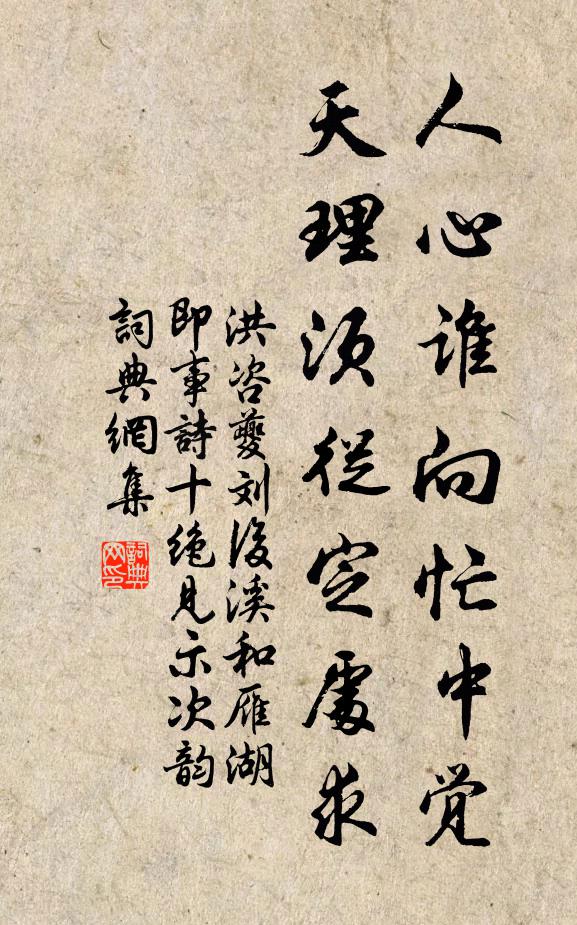 人心谁向忙中觉
天理须從定處求
洪咨夔刘後溪和雁湖
即事詩十绝見示次韵
詞典網集
詞典网印